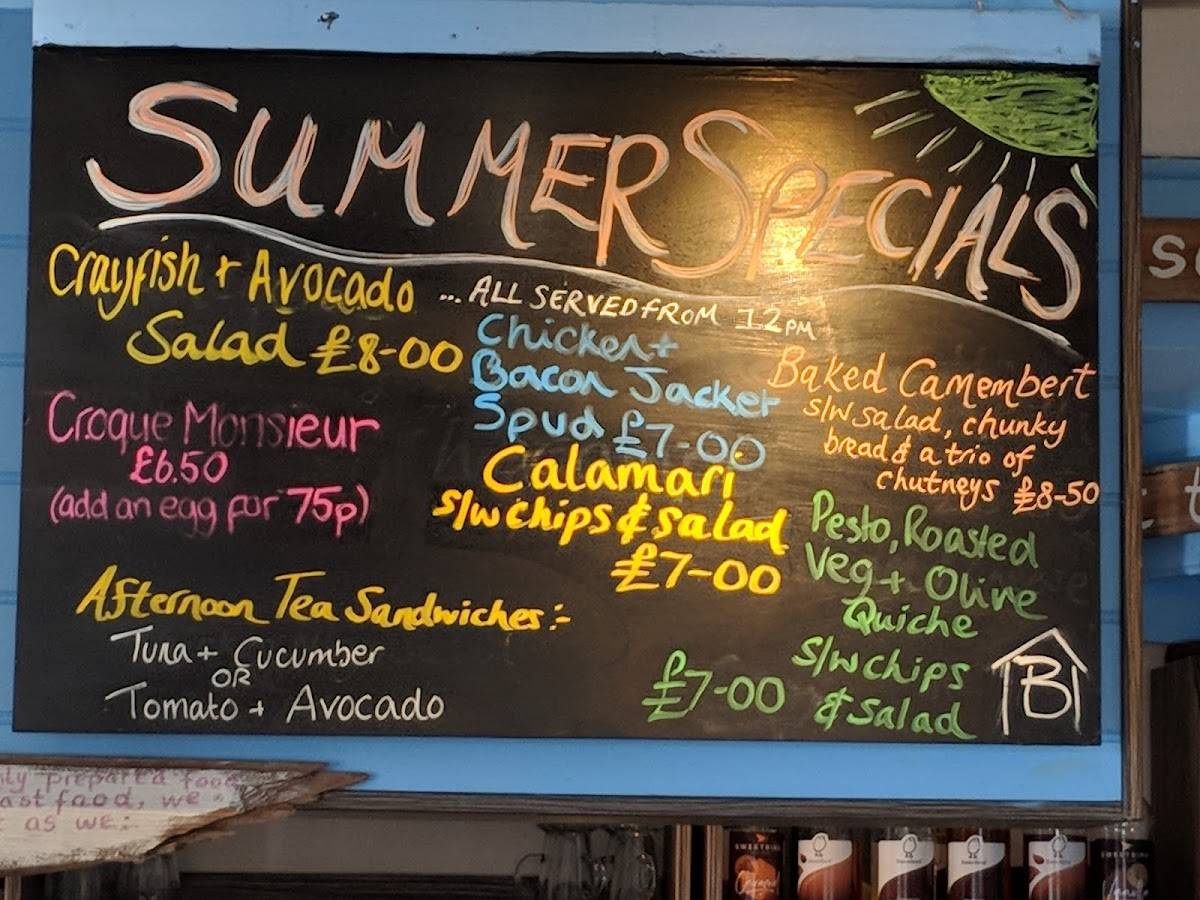 SUMMER SPECIALS
Crayfish + Avocado
Salad £8-00
... ALL SERVED FROM 12PM
Croque Monsieur
£6.50
(add an egg for 75p)
Chicken +
Bacon Jacket
Spud £7-00
Calamari
s/w chips & salad
£7-00
Baked Camembert
s/w salad, chunky
bread & a trio of
chutneys £8-50
Pesto, Roasted
Veg + Olive
Quiche
s/w chips
& salad
£7-00
Afternoon Tea Sandwiches:-
Tuna + Cucumber
OR
Tomato + Avocado
B
prepared food
food, we
AS WE: